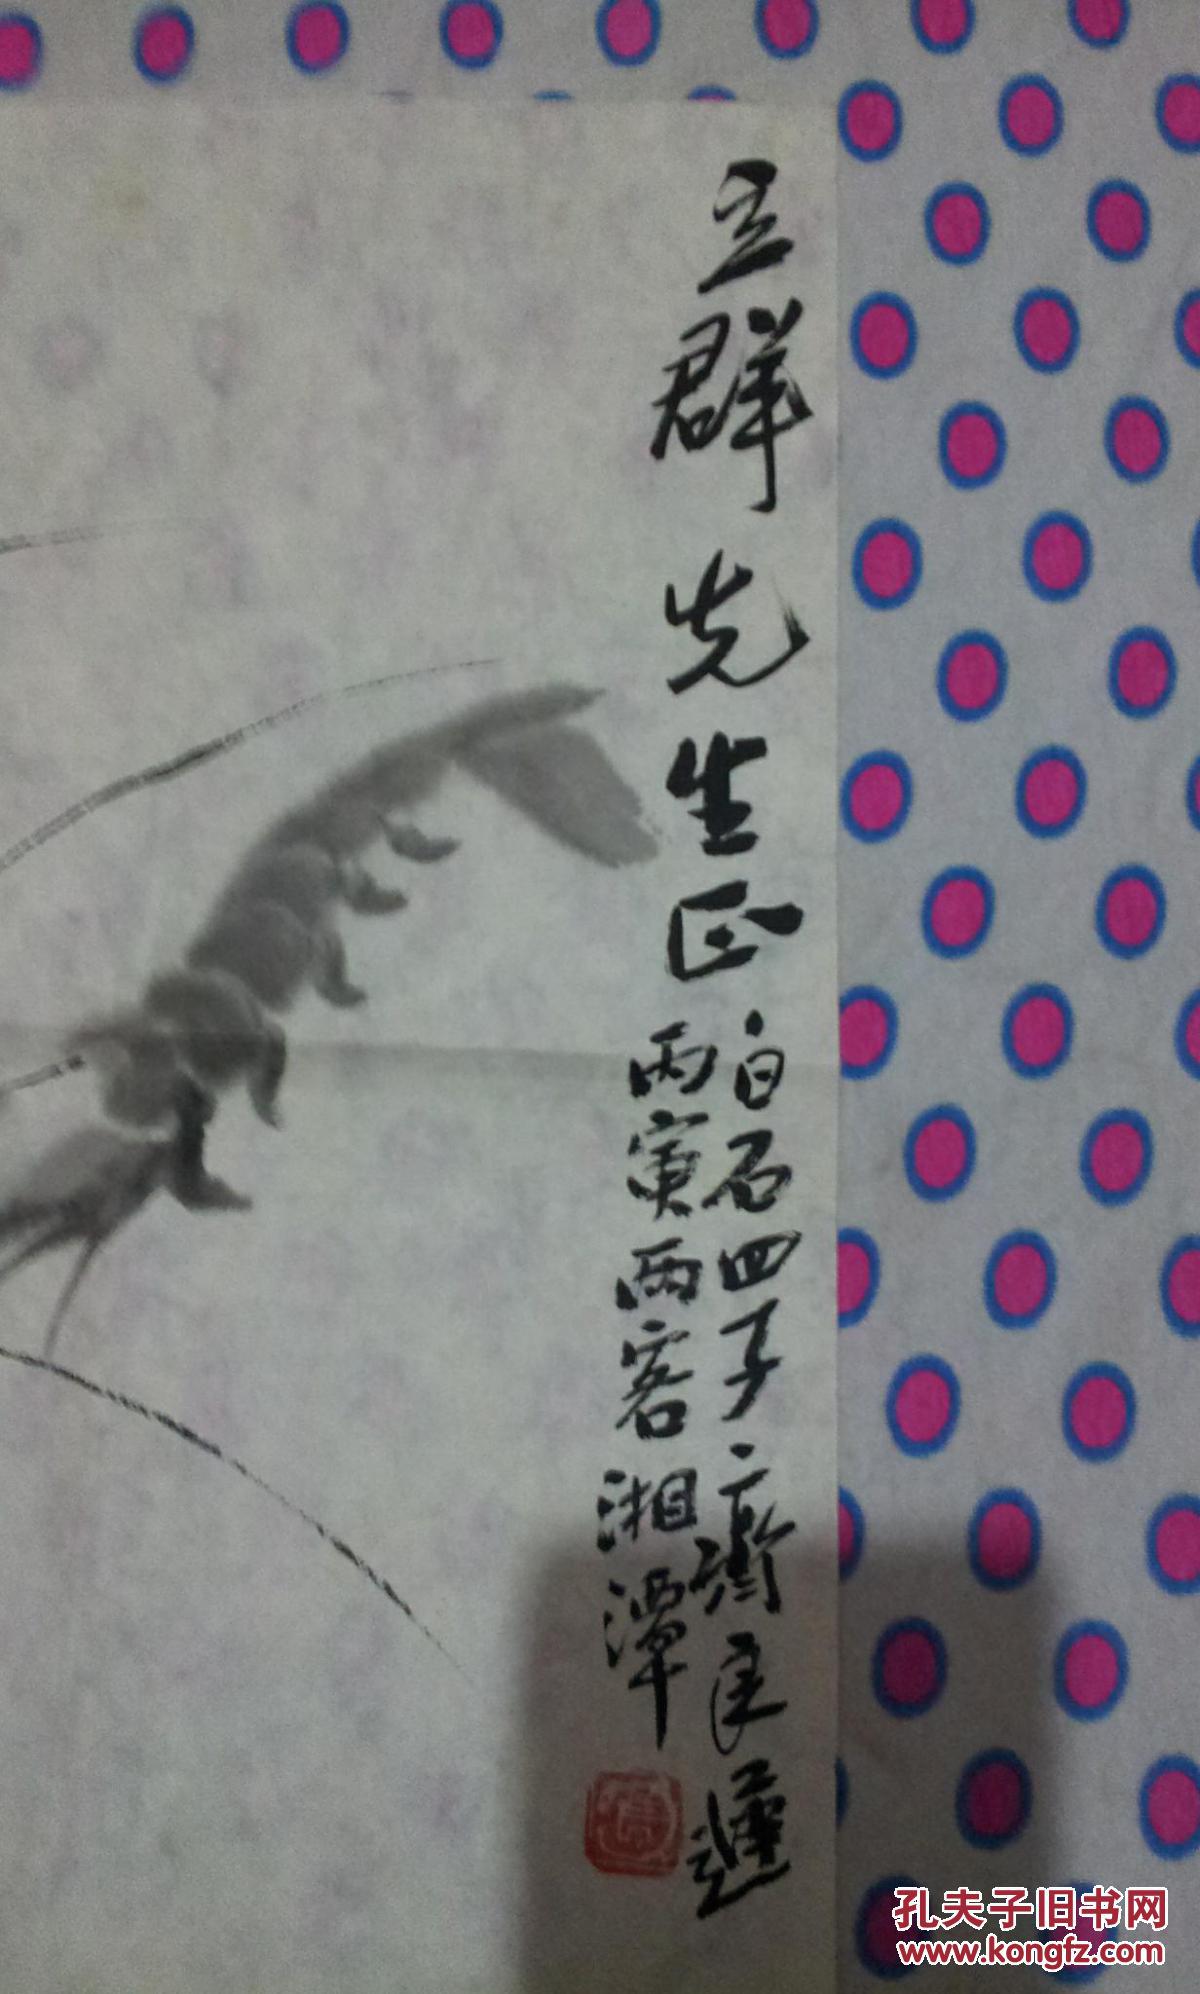 立群先生正
白石四子齊良遲
丙寅兩客湘潭
孔夫子旧书网
www.kongfz.com